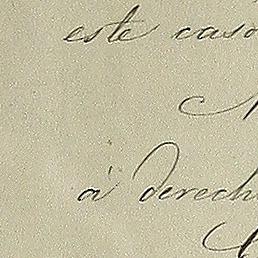 este caso
á derech